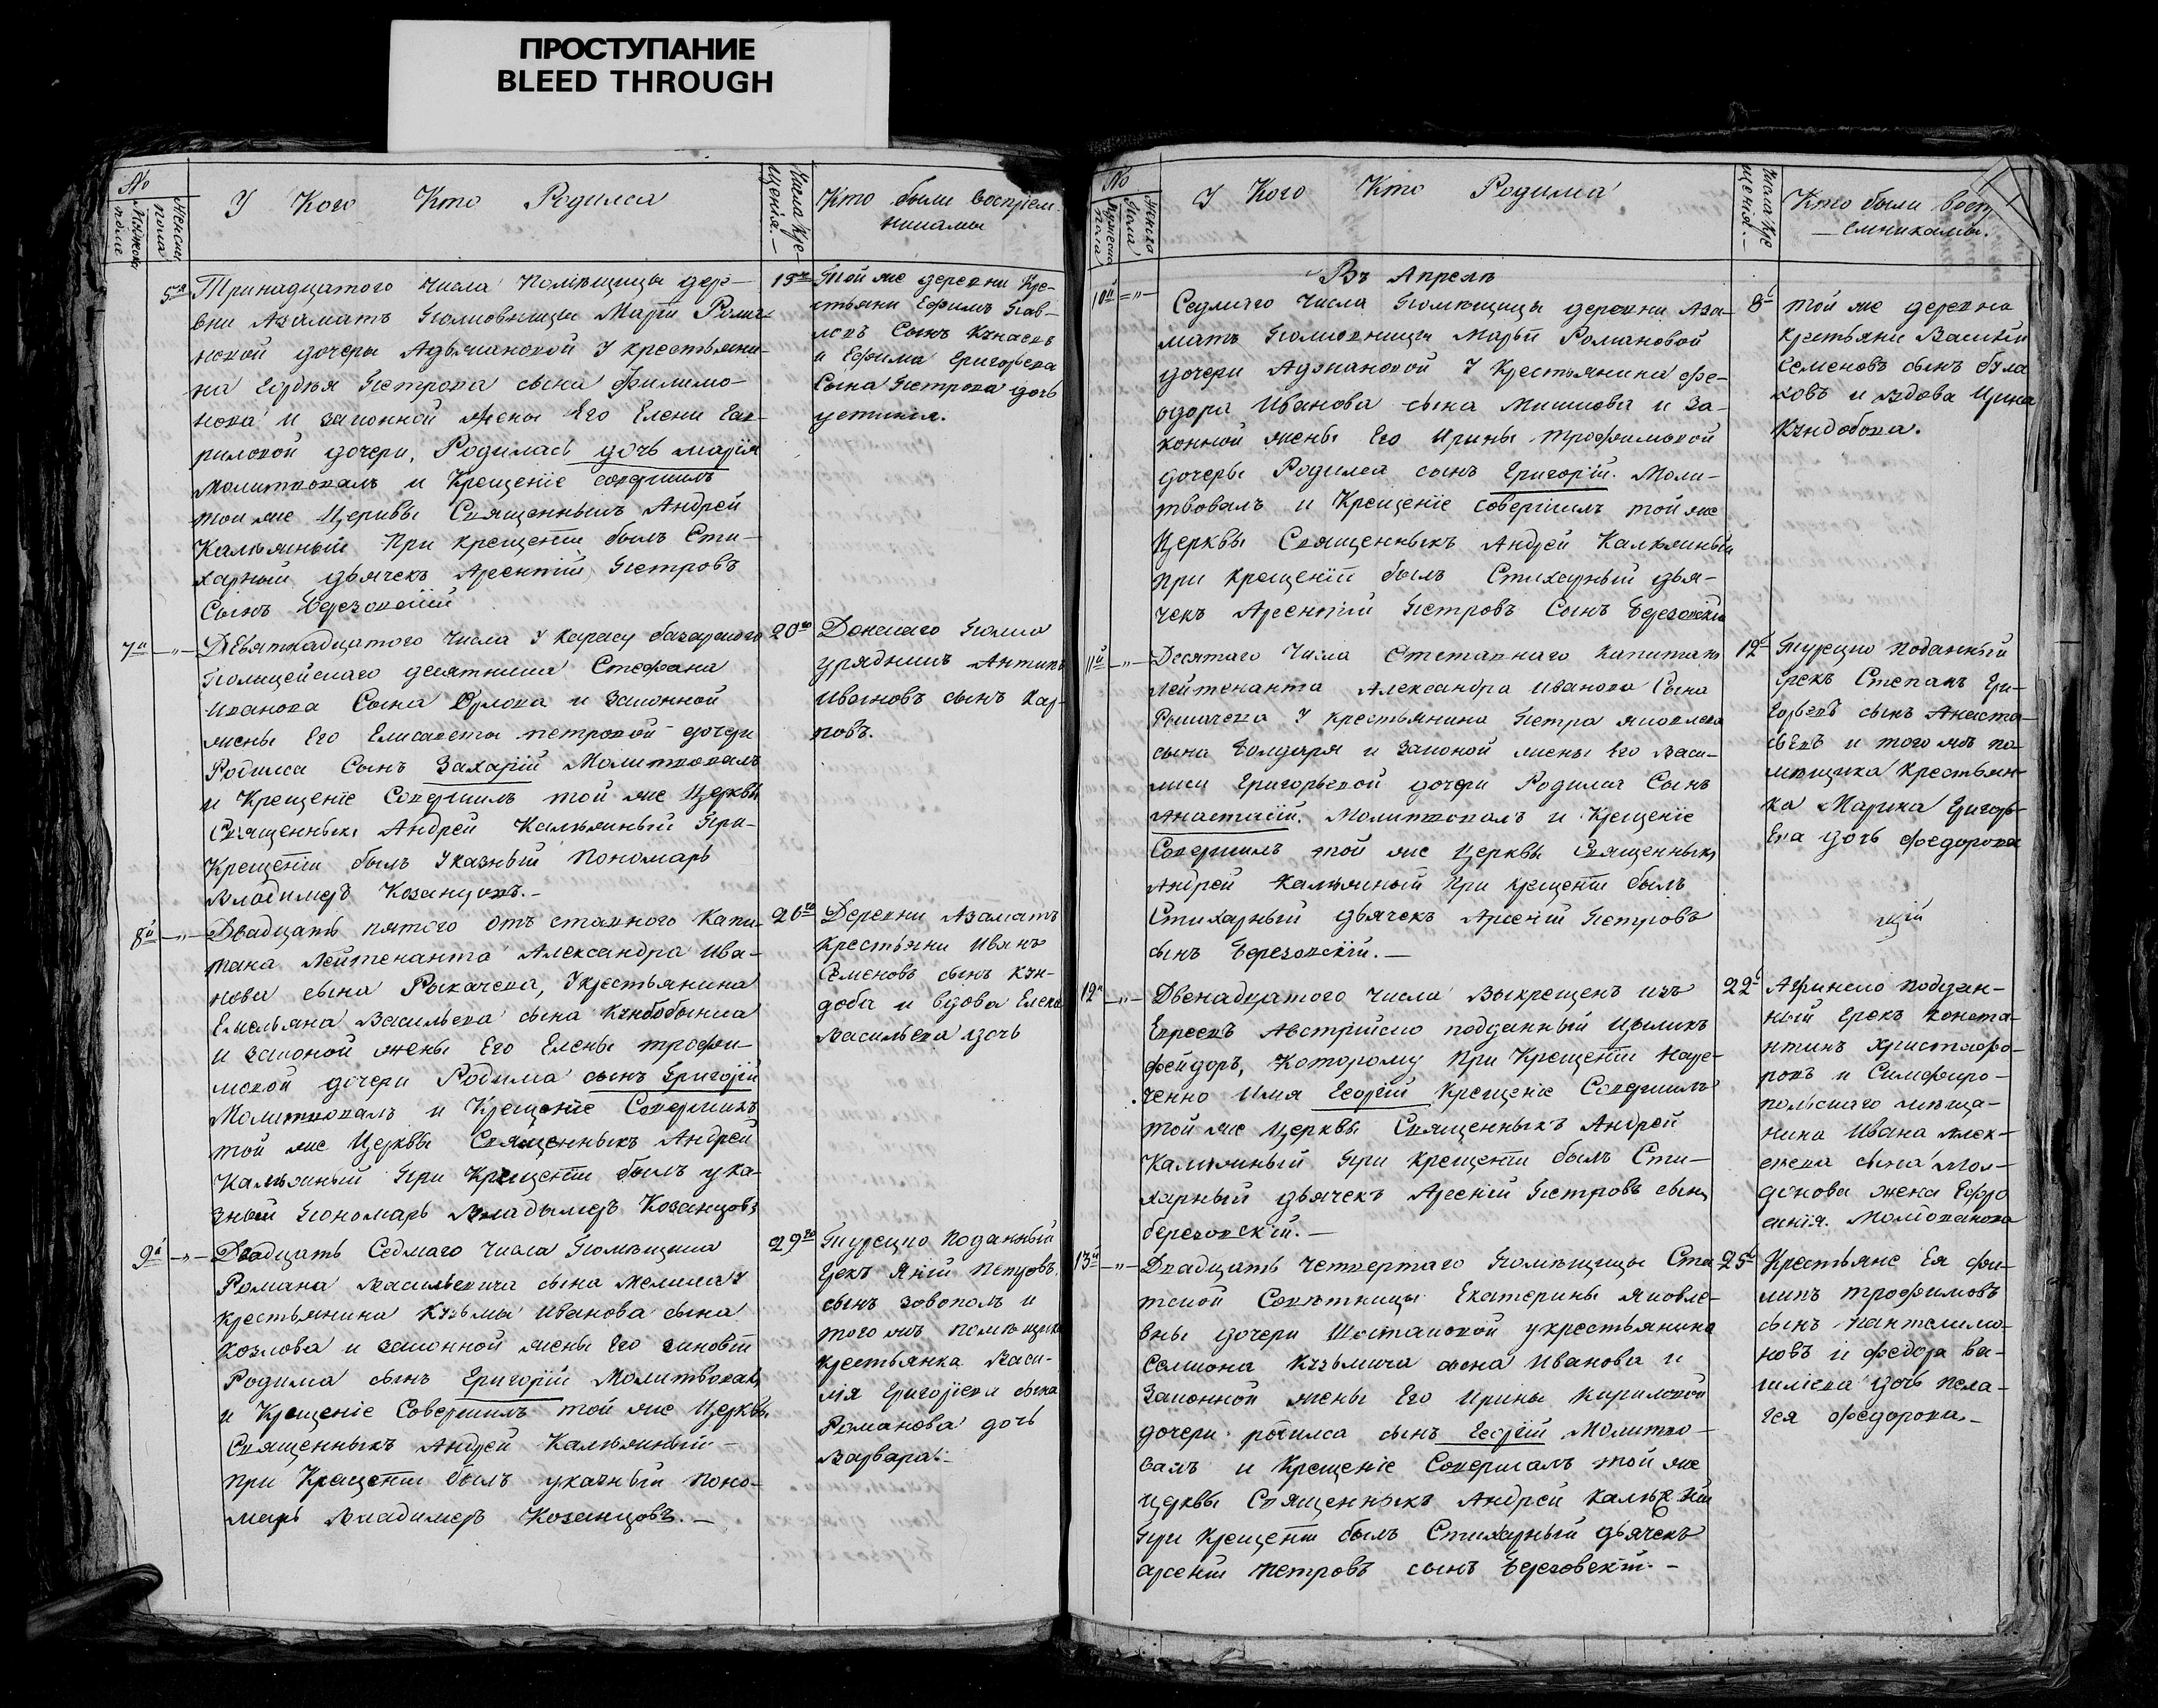 ПРОСТУПАНИЕ
BLEED THROUGH
№
Мужска поле
Женска пола
У Кого Кто Родился
Числа Крещенія.—
Кто были Воспріем
никами
5я
Тринадцатого Числа Помѣщицы дере—
вни Азаматъ Марїи Рома
новой дочеры Адъмановой У крестьяни—
на Петрова сына Филимо—
нова И законной Жены Его Елени Гав—
риловой дочери, Родилась дочь марія
Молитвовалъ и Крещеніе совершилъ
той же Церквы Священныкъ Андрей
При крещенїи былъ Сти—
харный дьячекъ Арсентій Петровъ
Сынъ Березовскїй
15го
Той же деревни Кре—
стьяни Ефимъ Пав—
ловъ Сынъ
и Ефима Григорьева
Сына Петрова дочь
устинія.
7й —„—
Девятнадцатого Числа У Карасу базарского
Полицейскаго десятника Стефана
Иванова Сына Орлова и Законной
жены Его Елисаветы петровой дочери
Родился Сынъ Захарій Молитвовалъ
и Крещеніе Совершилъ той же Церквы
Священныкъ Андрей При—
Крещенїи былъ Указный Пономарь
Владимеръ Козанцовъ.—
20го
Донскаго Полка
урядникъ Антипъ
Ивановъ сынъ Кар—
повъ.
8й —„—
Двадцать пятого отъ ставного Капи—
тана Лейтенанта Александра Ива—
нова сына Рыкачева, У крестьянина
Емельяна Васильева сына
и законой жены Его Елены трофи—
мовой дочери Родился сынъ Григорїй
Молитвовалъ и Крещеніе Совершилъ
той же Церквы Священныкъ Андрей
При Крещенїи былъ ука—
зный Пономарь Владымеръ Козанцовъ
26го
Деревни Азаматъ
Крестьяни Иванъ
Семеновъ сынъ Кун—
доба и вдова Елена
Васильева дочь
9й —„—
Двадцать Седмаго Числа Помѣщика
Романа Васильевича сына У
крестьянина Кузьмы Иванова сына
Козлова и законной жены Его зиновїи
Родился сынъ Григорїй Молитвовалъ
и Крещеніе Совершилъ той же Церквы
Священныкъ Андрей
при Крещенїи былъ указный поно—
марь Владимеръ Козанцовъ.—
29го
Турецко Поданный
Грекъ Петровъ
сынъ и
того жъ помѣщика
крестьянка Васи—
лія Григорїева сына
Романова дочь
Варвара.—
№
Мужеска Пола
Женска Пола
У Кого Кто Родился
Числа Кре
щенія.—
Кто были Восп
—емникамы.
Въ Апрелѣ
10й —„—
Седмаго Числа Помѣщицы деревни Аза—
матъ Марьи Романовой
дочери У Крестьянина Фе—
одора Иванова сына и За—
конной жены Его Ирины трофимовой
дочеры Родился сынъ Григорїй. Моли—
твовалъ и Крещеніе совершилъ той же
Церквы Священныкъ Андрей
При крещенїи былъ Стихарный дья—
чекъ Арсентїй Петровъ Сынъ Березовскїй
8й
той же деревни
Крестьяни Василїй
Семеновъ сынъ була
ховъ и вдова Ирина
Кундобова.
11й —„—
Десятаго Числа Отставнаго Капитана
Лейтенанта Александра Иванова Сына
Рыкачева У крестьянина Петра яковлева
сына и Законой жены его Васи—
лиси Григорьевой дочери Родился Сынъ
Анастасїй. Молитвовалъ и Крещеніе
Совершилъ той же Церквы Священныкъ
Андрей При крещенїи былъ
Стихарный дьячекъ Арсенїй Петровъ
сынъ Березовскїй.—
12й
Турецко поданный
Грекъ Степанъ Гри—
горьевъ сынъ Анаста—
сьевъ и того жъ по—
мѣщика крестьян—
ка Марина Григорь—
Ева дочь Федорова
12й —„—
Двенадцатого числа Выкрещенъ изъ
Евреевъ Австрійско подданный
которому При Крещенїи Наре—
ченно Имя Георгїй Крещеніе Совершилъ
той же Церквы Священныкъ Андрей
При крещенїи былъ Сти—
харный дьячекъ Арсенїй Петровъ сынъ
березовскїй.—
22й
Афинско поддан—
ный Грекъ конста—
нтинъ христофо—
ровъ и Симферо—
польскаго мѣща—
нина Ивана Алек—
сѣева сына Мол—
донова жена Ефро
синїя.
13й —„—
Двадцать Четвертаго Помѣщицы Ста
тской Совѣтницы Екатерины яковле—
вны дочери у крестьянина
Семиона Кузьмича сына Иванова и
Законной жены Его Ирины Кириловой
дочери родился сынъ Георгїй Молитво—
валъ и Крещеніе Совершалъ той же
церквы Священныкъ Андрей
При Крещенїи былъ Стихарный дьячекъ
арсенїй петровъ сынъ Березовскїй.—
25й
Крестьяне Ея фи—
липъ трофимовъ
сынъ пантелимо—
новъ и федора ва—
силїева дочь пела—
гея Федорова.—